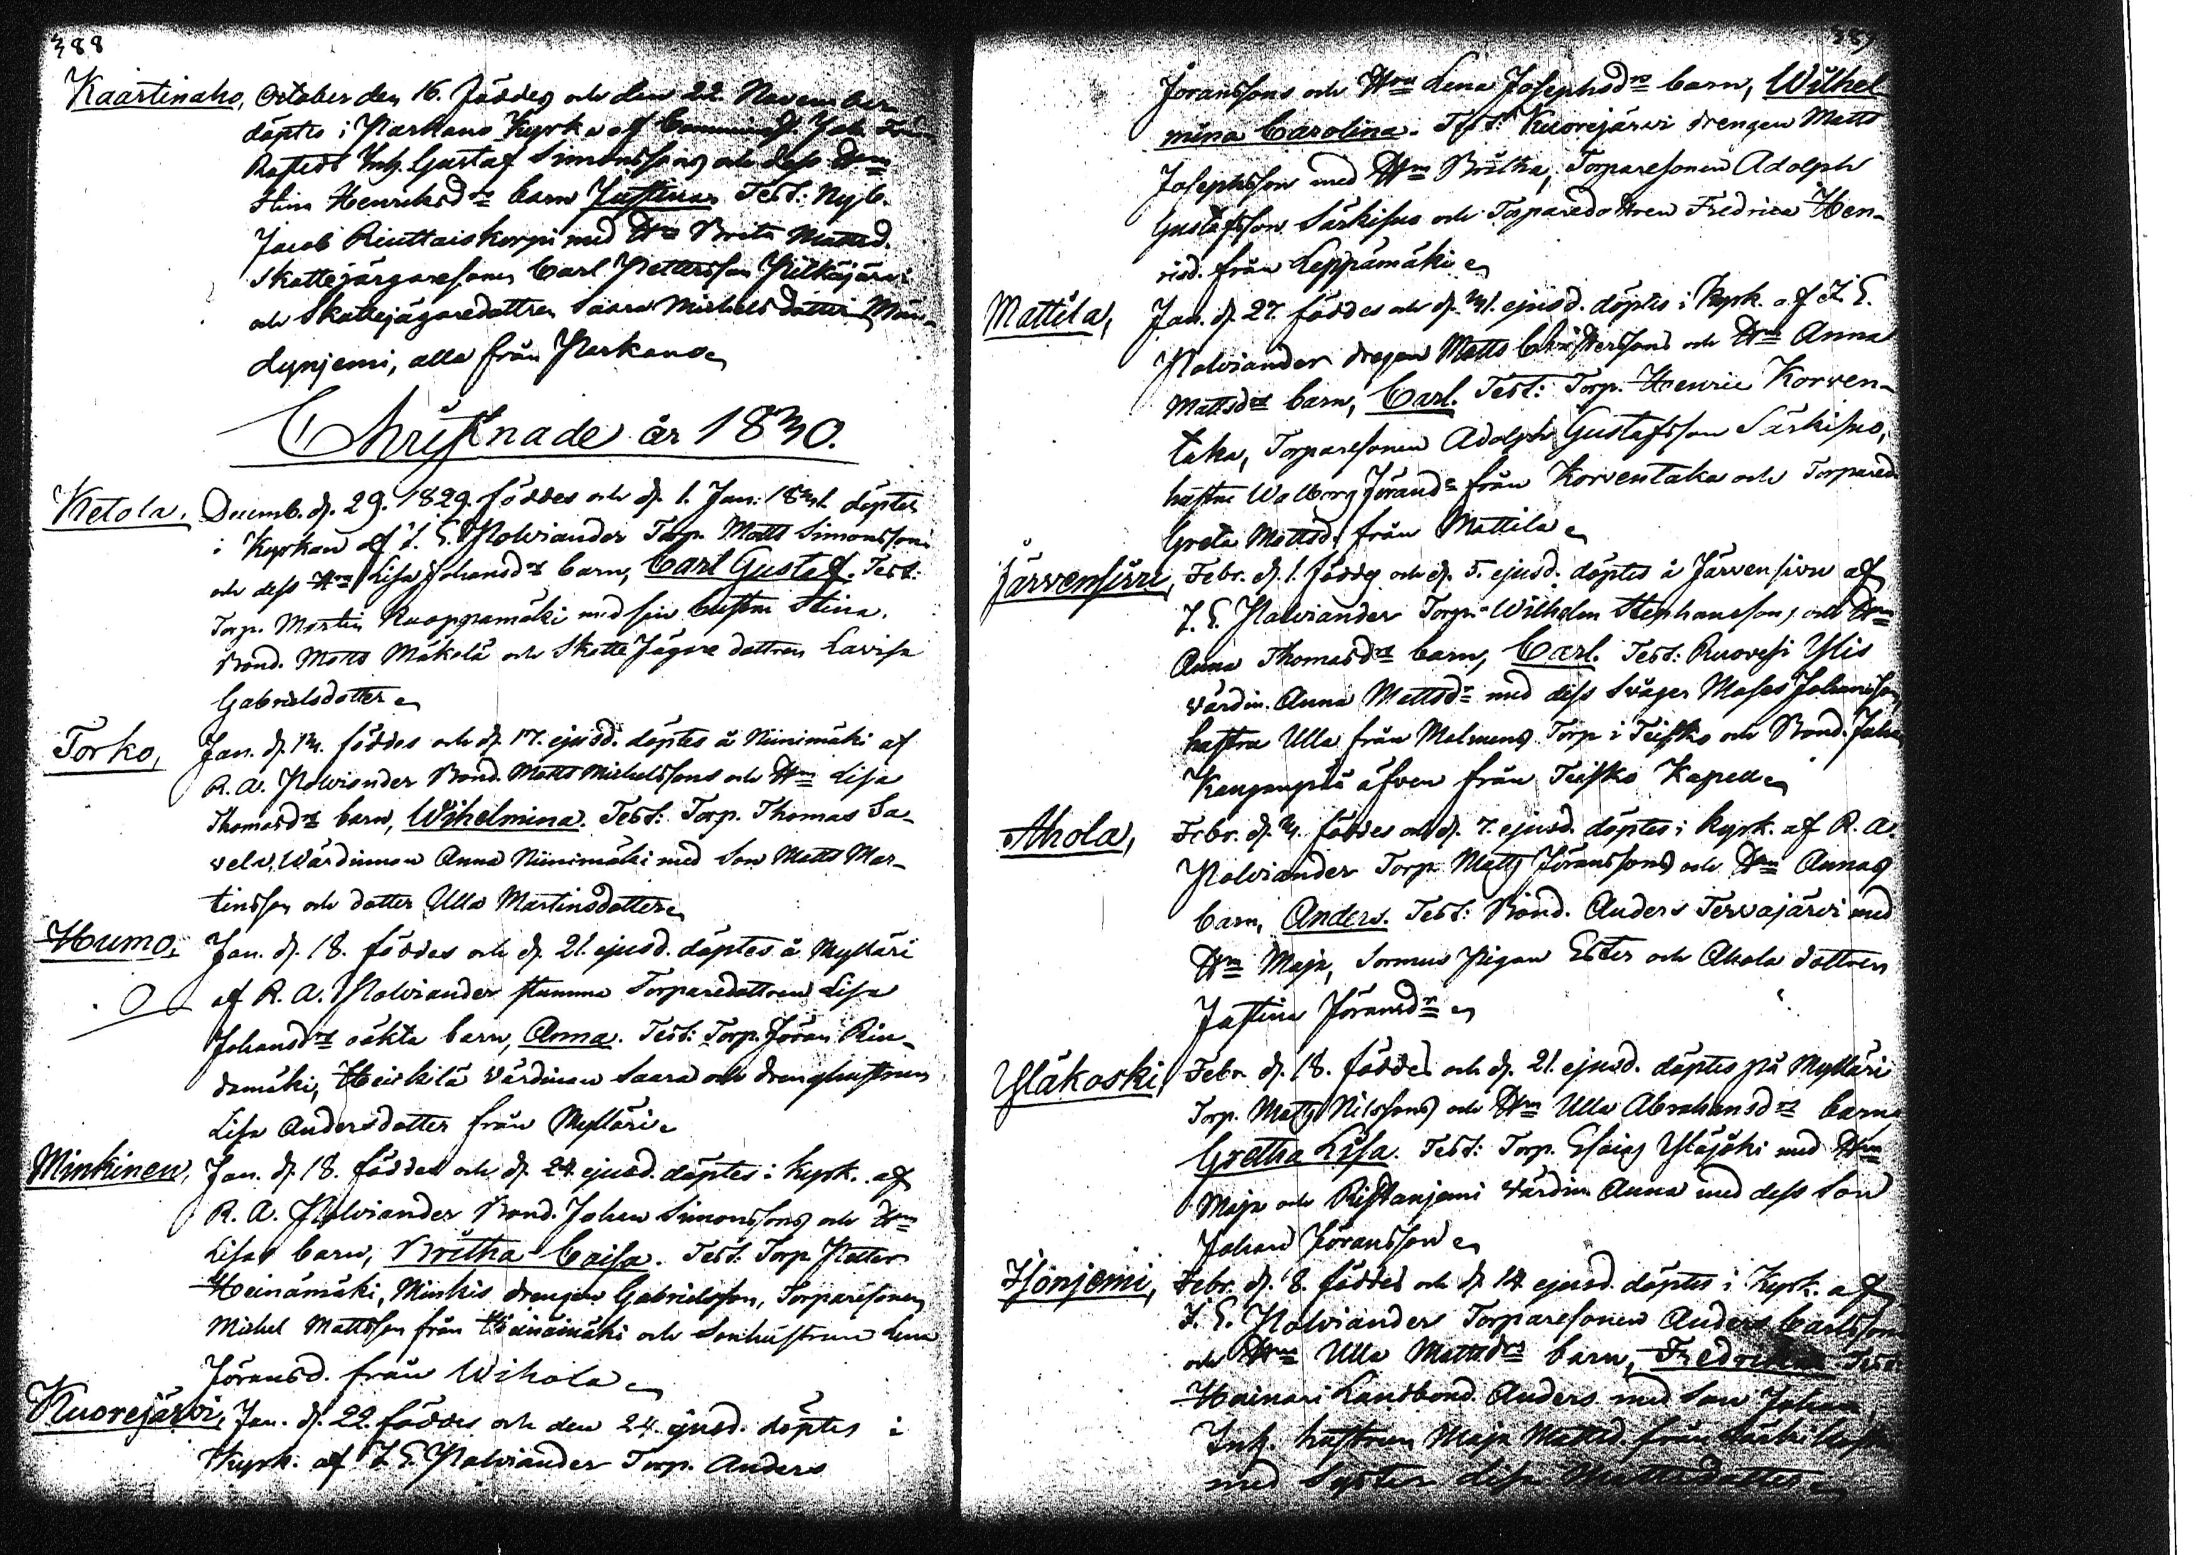 388
Kaartinaho, October den 16. föddes och den 22. November
döptes i Parkano Kyrka af
Inh. Gustaf Simonssons och dess H:u
Stina Henriksd:rs barn Justina. Test: Nyb.
Jacob Riuttaiskorpi med H:u Brita Mattsd.
Skattejägaresonen Carl Pettersson Pilkäjärvi
och Skattejägaredottren Saara Michelsdotter
dynjemi, alla från Parkano
Christnade år 1830.
Ketola. Decemb. d. 29. 1829. föddes och d. 1. Jan. döptes
i Kyrkan af J. E. Palviander Torp. Matts Simonssons
och dess H:u Lisa Johansd:rs barn, Carl Gustaf. Test:
Torp. Martin Kuoppamäki med sin hustru Stina.
Bond. Matts Mäkelä och SkatteJägare dottren Lavisa
Gabrielsdotter
Torko, Jan. d. 13. föddes och d. 17. ejusd. döptes å Niinimäki af
R. A. Palviander Bond. Matts Michelssons och H:u Lisa
Thomasd:rs barn, Wihelmina. Test: Torp. Thomas Sa-
vela, Wärdinnan Anna Niinimäki med Son Matts Mar-
tinsson och dotter Ulla Martinsdotter
Humo. Jan. d. 18. föddes och d. 21. ejusd. döptes å Mylläri
af R. A. Palviander stumma Torparedottren Lisa
Johansd:rs oäkta barn, Anna. Test: Torp. Jöran Rin-
damäki, Heickilä värdinnan Saara och drenghustrun
Lisa Andersdotter från Mylläri
Minkinen, Jan. d. 18. föddes och d. 24. ejusd. döptes i Kyrk. af
R. A. Palviander Bond. Johan Simonssons och H:u
Lisas barn, Britha Caisa. Test: Torp. Petter
Heinämäki, Minkis drengen Gabrielsson, Torparesonen
Michel Mattsson från Heinämäki och Sonhustrun Lena
Jöransd. från Wihola
Kuorejärvi, Jan. d. 22. föddes och den 24. ejusd. döptes i
Kyrk. af J. E. Palviander Torp. Anders
389
Joranssons och H:u Lena Josephsd:rs barn, Wilhel
mina Carolina. Test: Kuorejärvi drengen Matts
Josephsson med H:u Britha, Torparesonen Adolph
Gustafsson Särkisuo och Torparedottren Fredrica Hen-
ricsd. från Leppämäki
Mattila, Jan. d. 27. föddes och d. 31. ejusd. döptes i Kyrk. af J. E.
Palviander dregen Matts Christerssons och H:u Anna
Mattsd:rs barn, Carl. Test: Torp. Henric Korven-
taka, Torparesonen Adolph Gustafsson Särkisuo,
hustru Walborg Jöransd:r från Korventaka och Torpared.
Greta Mattsd. från Mattila
Järvensivu, Febr. d. 1. föddes och d. 5. ejusd. döptes å Järvensivu af
J. E. Palviander Torp. Wilhelm Stephanssons och H:u
Anna Thomasd:rs barn, Carl. Test: Ruovesi Ylis
värdin. Anna Mattsd:r med dess Svåger Moses Johansson,
hustru Ulla från Malmens Torp i Teisko och Bond. Johan
Kangenpää äfven från Teisko Kapell
Ahola, Febr. d. 3. föddes och d. 7. ejusd. döptes i Kyrk. af R. A.
Palviander Torp. Matts Jöranssons och H:u Annas
barn, Anders. Test: Bond. Anders Tervajärvi med
H:u Maja, Sormus Pigan Ester och Ahola dottren
Justina Jöransd:r
Yläkoski, Febr. d. 18. föddes och d. 21. ejusd. döptes på Mylläri
Torp. Matts Nilssons och H:u Ulla Abrahamsd:rs barn
Gretha Lisa. Test: Torp. Esaias Yläjoki med H:u
Maja och Ristanjemi värdin. Anna med dess Son
Johan Jöransson
Hönjemi, Febr. d. 8. föddes och d. 14. ejusd. döptes i Kyrk. af
J. E. Palviander Torparesonen Anders Carlssons
och H:u Ulla Mattsd:rs barn, Test:
Hainari Landbond. Anders med Son Johan
Inh. hustrun Maja Mattsd. från
med Syster Lisa Mattsdotter